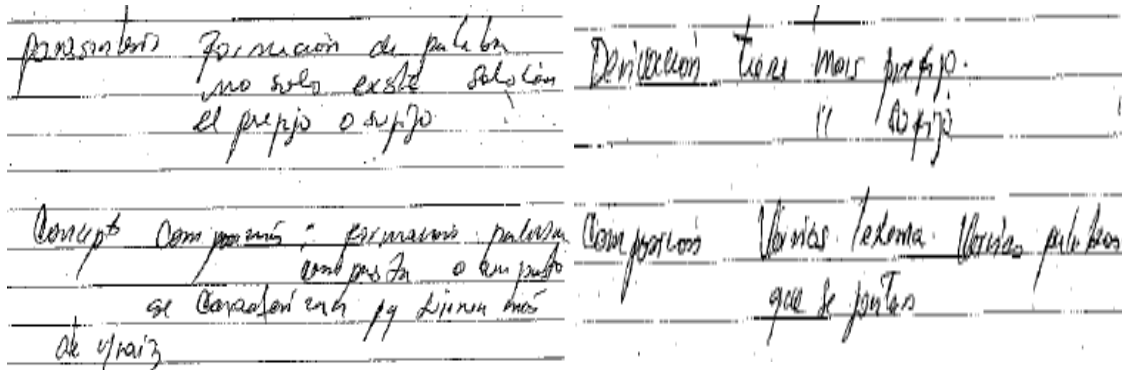 parasíntesis Formación de palabra
no solo existe solo con
el prefijo o sufijo.
Concepto Composición: formación palabra
compuesta o
se Caracterizan pq tienen más
de 1 raiz
Derivación tiene mas prefijo.
" sofijo
Composición Varias lexema. Varias palabras
que se juntas